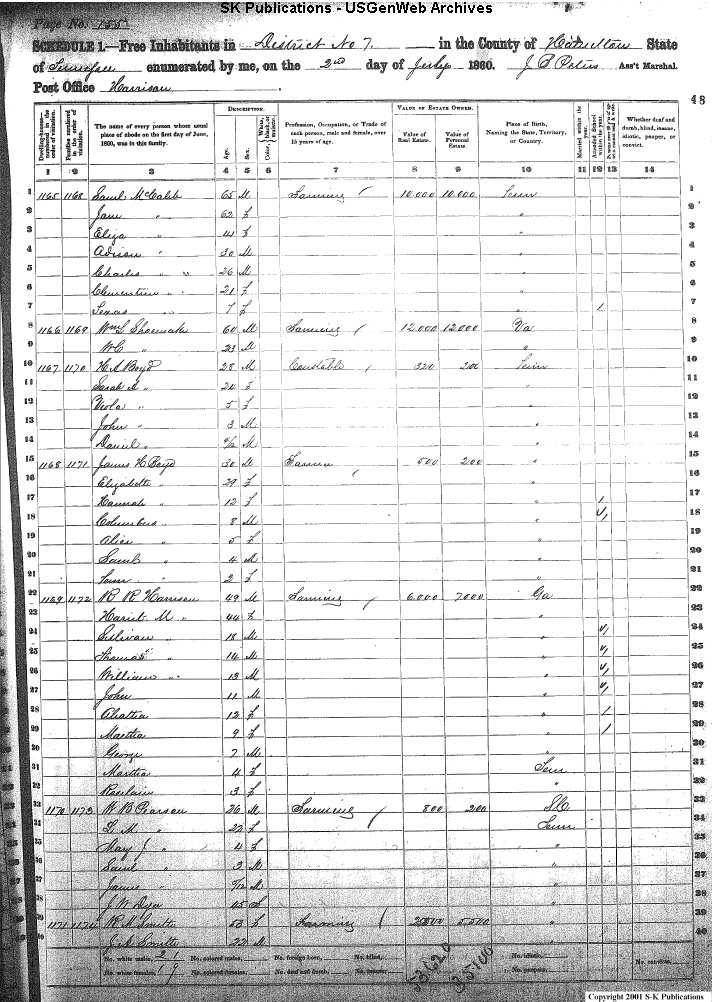 SK Publications - USGenWeb Archives
Page No. 155
SCHEDULE 1.—Free Inhabitants in District No 7. in the County of Hamilton State
of Tennessee enumerated by me, on the 2nd day of July 1860. J B Peters Ass't Marshal.
Post Office Harrison
48
Dwelling-houses—numbered in the order of visitation.
Families numbered in the order of visitation.
The name of every person whose usual place of abode on the first day of June, 1860, was in this family.
DESCRIPTION.
Age.
Sex.
Color, White, black, or mulatto.
Profession, Occupation, or Trade of each person, male and female, over 15 years of age.
VALUE OF ESTATE OWNED.
Value of Real Estate.
Value of Personal Estate.
Place of Birth, Naming the State, Territory, or Country.
Married within the year.
Attended School within the year.
Whether deaf and dumb, blind, insane, idiotic, pauper, or convict.
1 2 3 4 5 6 7 8 9 10 11 12 13 14
1 1165 1168 Saml McCaleb 65 M Farming 10,000 10,000 Tenn 1
2 Jane " 62 f " 2
3 Eliza " 41 f " 3
4 " 30 M " 4
5 Charles " " 26 M " 5
6 Clementine " 21 f " 6
7 Texas " 7 f " 1 7
8 1166 1169 Wm L Shoemake 60 M Farming 12,000 12,000 Va 8
9 W C " 23 M " 9
10 1167 1170 H A Boyd 28 M Constable 320 200 Tenn 10
11 Sarah A " 24 f " 11
12 Viola " 5 f " 12
13 John " 3 M " 13
14 Daniel " M " 14
15 1168 1171 James H Boyd 30 M Farmer 500 200 " 15
16 Elizabeth " 29 f " 16
17 Hannah " 12 f " 1 17
18 Columbus " 8 M " 1 18
19 Alice " 5 f " 19
20 Saml " 4 M " 20
21 Tenn " 2 f " 21
22 1169 1172 R R Harrison 49 M Farming 6,000 7,000 Ga 22
23 Hariet M " 44 f " 23
24 Sullivan " 18 M " 1 24
25 Thomas " 14 M " 1 25
26 William " 13 M " 1 26
27 John " 11 M " 1 27
28 12 f " 1 28
29 Martha " 9 f " 1 29
30 George 7 M " 30
31 Martha 4 f Tenn 31
32 3 f " 32
33 1170 1173 W B Pearson 26 M Farming 800 200 SC 33
34 22 f Tenn 34
35 Mary J " 4 f " 35
36 Saml " 3 M " 36
37 James " M " 37
38 J W Dyer 15 " 38
39 1171 1174 R M Smith 53 f Farming 2500 5,500 " 39
40 J A Smith 22 M " 40
No. white males, 21 No. colored males, No. foreign born, No. blind, No. idiotic,
No. white females, 19 No. colored females, No. deaf and dumb, No. insane, No. paupers, No. convicts,
33620 35100
Copyright 2001 S-K Publications